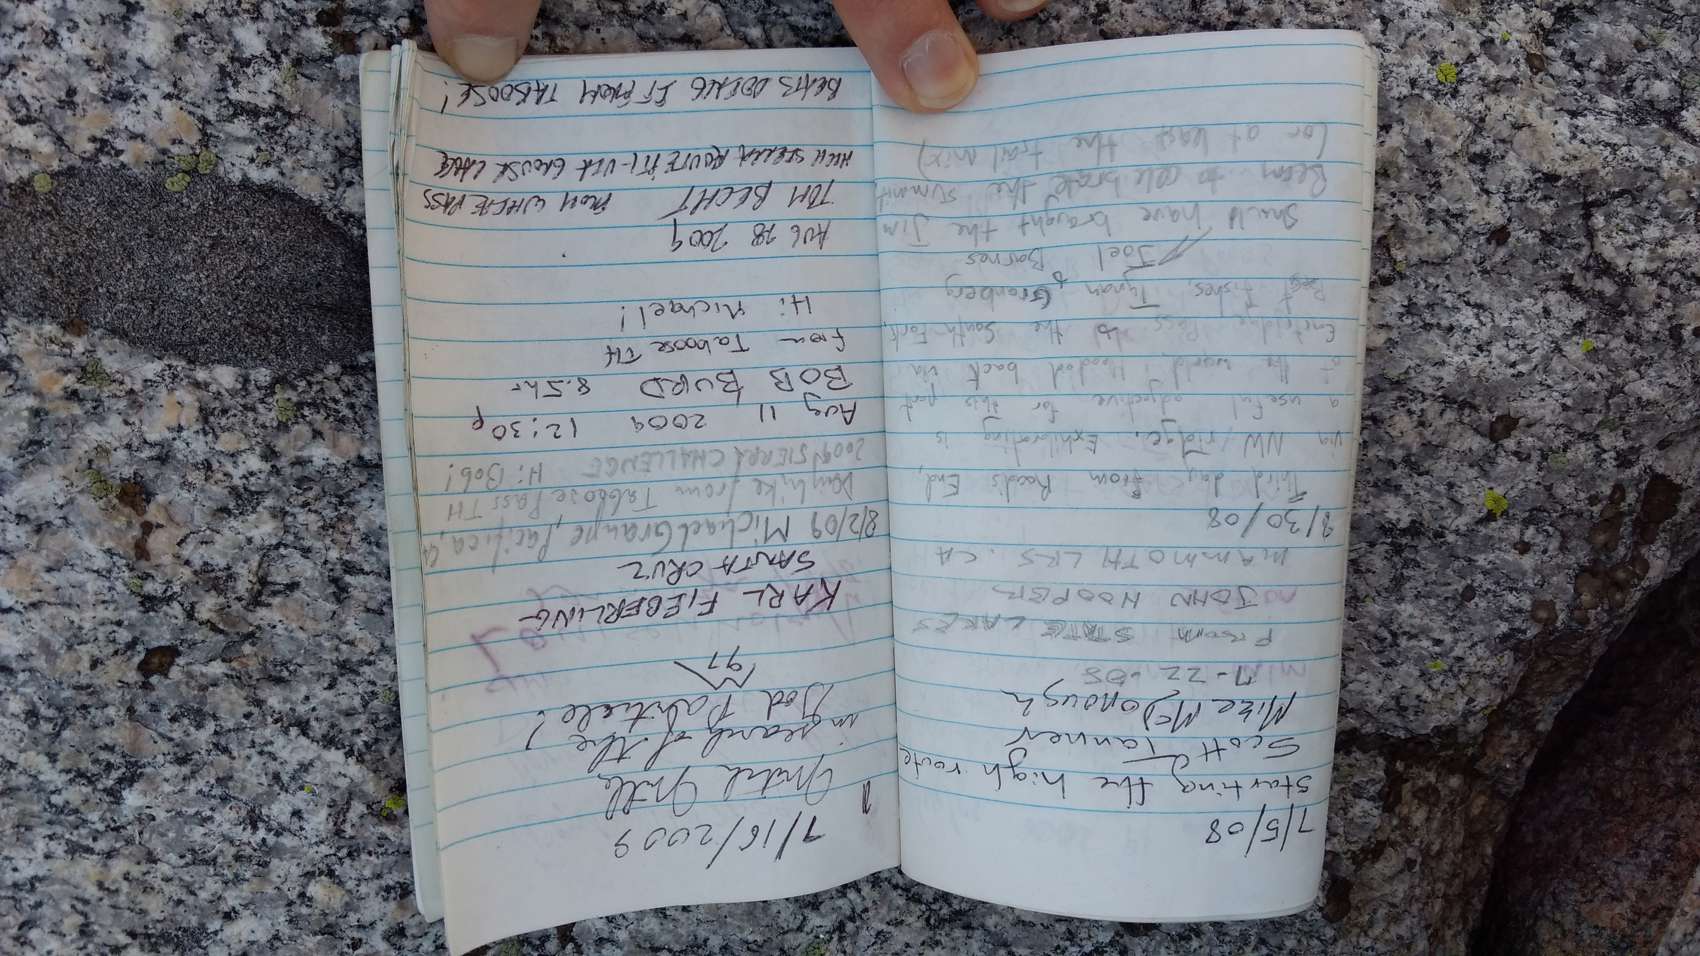 7/5/08
Starting the high route
Scott Tanner
Mike McDonough
7-22-08
From STATE LAKES
JOHN HOOPER
MAMMOTH LKS. CA
8/30/08
Third day from Road's End,
via NW ridge. Exhilarating is
a useful adjective for this part
of the world. Headed back via
Cartridge Pass to the South Fork.
Best fishes, Tynan Granberg
&
Joel Barnes
Should have brought the Jim
Beam to celebrate the summit
(or at least the trail mix)
7/16/2009
in search of the
'97
KARL FIEBERLING
SANTA CRUZ
8/2/09 Michael Graupe, Pacifica, CA
Dayhike from Taboose Pass TH
2009 SIERRA CHALLENGE Hi Bob!
Aug 11 2009 12:30p
BOB BURD 8.5hr
from Taboose TH
Hi Michael!
AUG 28 2009
TOM BECHT FROM WHITE PASS
HIGH SIERRA ROUTE #1 - VIA GROUSE LAKE
BEATS DOING IT FROM TABOOSE!